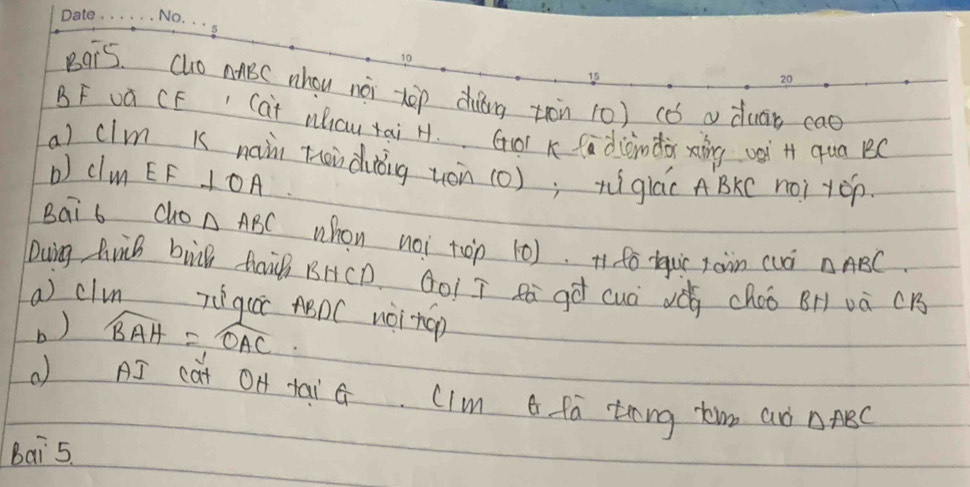 Date . . . . . . No. . . .
5 10 15 20
Bài 5. Cho ΔABC nhọn nội tiếp đường tròn (O) có 2 đường cao
BF và CF, cắt nhau tại H. Gọi K là điểm đối xứng với H qua BC
a) c/m K nằm trên đường tròn (O); tứ giác ABKC nội tiếp.
b) c/m EF ⊥ OA.
Bài 6 Cho Δ ABC nhọn nội tiếp (O). H là trực tâm của ΔABC.
Dựng hình bình hành BHCD. Gọi I là chéo BH và CB
a) c/m Tứ giác ABDC nội tiếp
b) BAH = OAC.
c) AI cắt OH tại G. C/m G là trọng tâm của ΔABC
Bài 5.